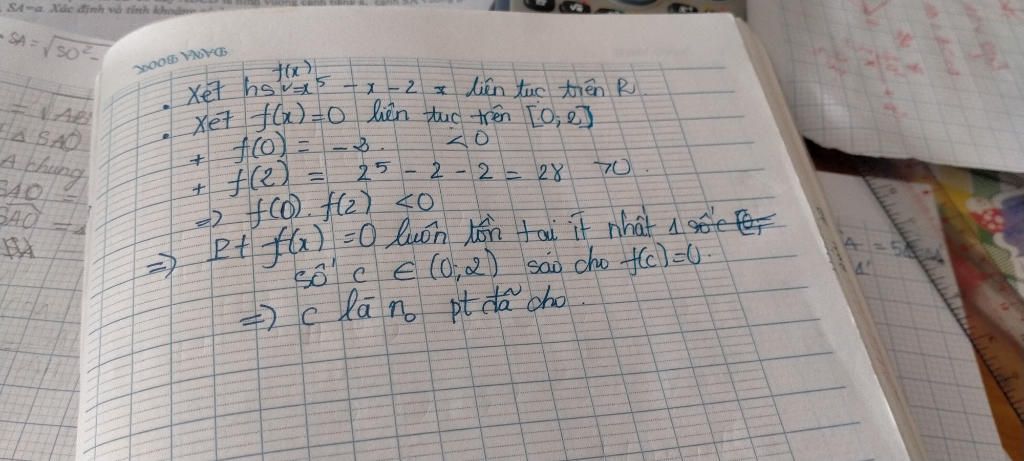 SA=a. Xác định và tính khoảng
SA = √SO² -
SAO
A chung
SAO =
SAO =
f(x)
• Xét hs y=x⁵ - x - 2 liên tục trên R.
• Xét f(x)=0 liên tục trên [0;2]
+ f(0) = -2. <0
+ f(2) = 2⁵ - 2 - 2 = 28 >0.
=> f(0). f(2) <0
=> Pt f(x) =0 luôn tồn tại ít nhất 1 số c
số c ∈ (0;2) sao cho f(c)=0.
=> c là n₀ pt đã cho.